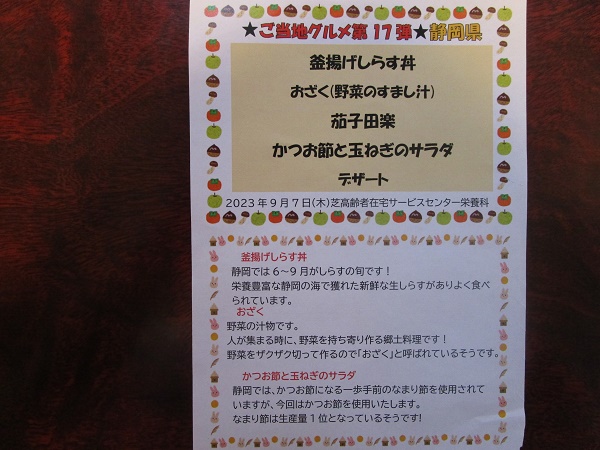 ★ご当地グルメ第17弾★静岡県
釜揚げしらす丼
おざく(野菜のすまし汁)
茄子田楽
かつお節と玉ねぎのサラダ
デザート
2023年9月7日(木)芝高齢者在宅サービスセンター栄養科
釜揚げしらす丼
静岡では6～9月がしらすの旬です！
栄養豊富な静岡の海で獲れた新鮮な生しらすがありよく食べ
られています。
おざく
野菜の汁物です。
人が集まる時に、野菜を持ち寄り作る郷土料理です！
野菜をザクザク切って作るので「おざく」と呼ばれているそうです。
かつお節と玉ねぎのサラダ
静岡では、かつお節になる一歩手前のなまり節を使用されて
いますが、今回はかつお節を使用いたします。
なまり節は生産量1位となっているそうです!